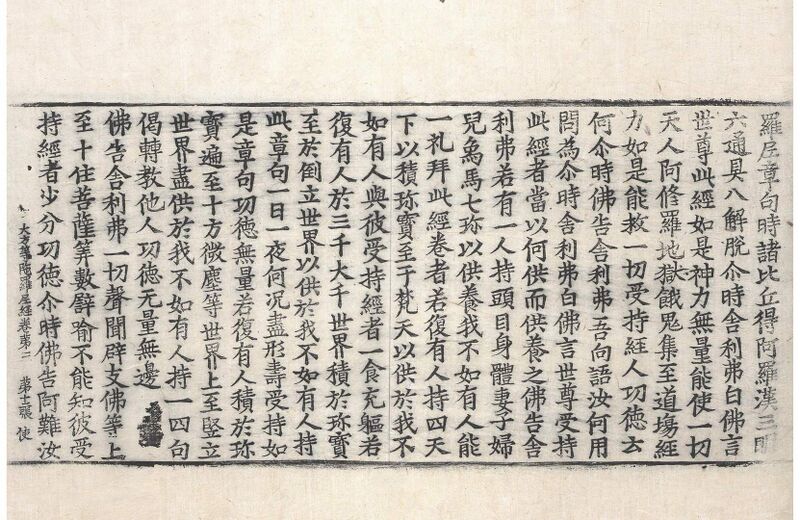 羅尼章句時諸比丘得阿羅漢三明
六通具八解脫尒時舍利弗白佛言
世尊此經如是神力無量能使一切
天人阿修羅地獄餓鬼集至道場經
力如是能救一切受持經人功德云
何尒時佛告舍利弗吾向語汝何用
問為尒時舍利弗白佛言世尊受持
此經者當以何供而供養之佛告舍
利弗若有一人持頭目身體妻子婦
兒象馬七珎以供養我不如有人能
一礼拜此經卷者若復有人持四天
下以積珎寶至于梵天以供於我不
如有人與彼受持經者一食充軀若
復有人於三千大千世界積於珎寶
至於倒立世界以供於我不如有人持
此章句一日一夜何況盡形壽受持如
是章句功德無量若復有人積於珎
寶遍至十方微塵等世界上至竪立
世界盡供於我不如有人持一四句
偈轉教他人功德无量無邊
佛告舍利弗一切聲聞辟支佛等上
至十住菩薩筭數譬喻不能知彼受
持經者少分功德尒時佛告阿難汝
大方等陁羅尼經卷第三 第十二張 使